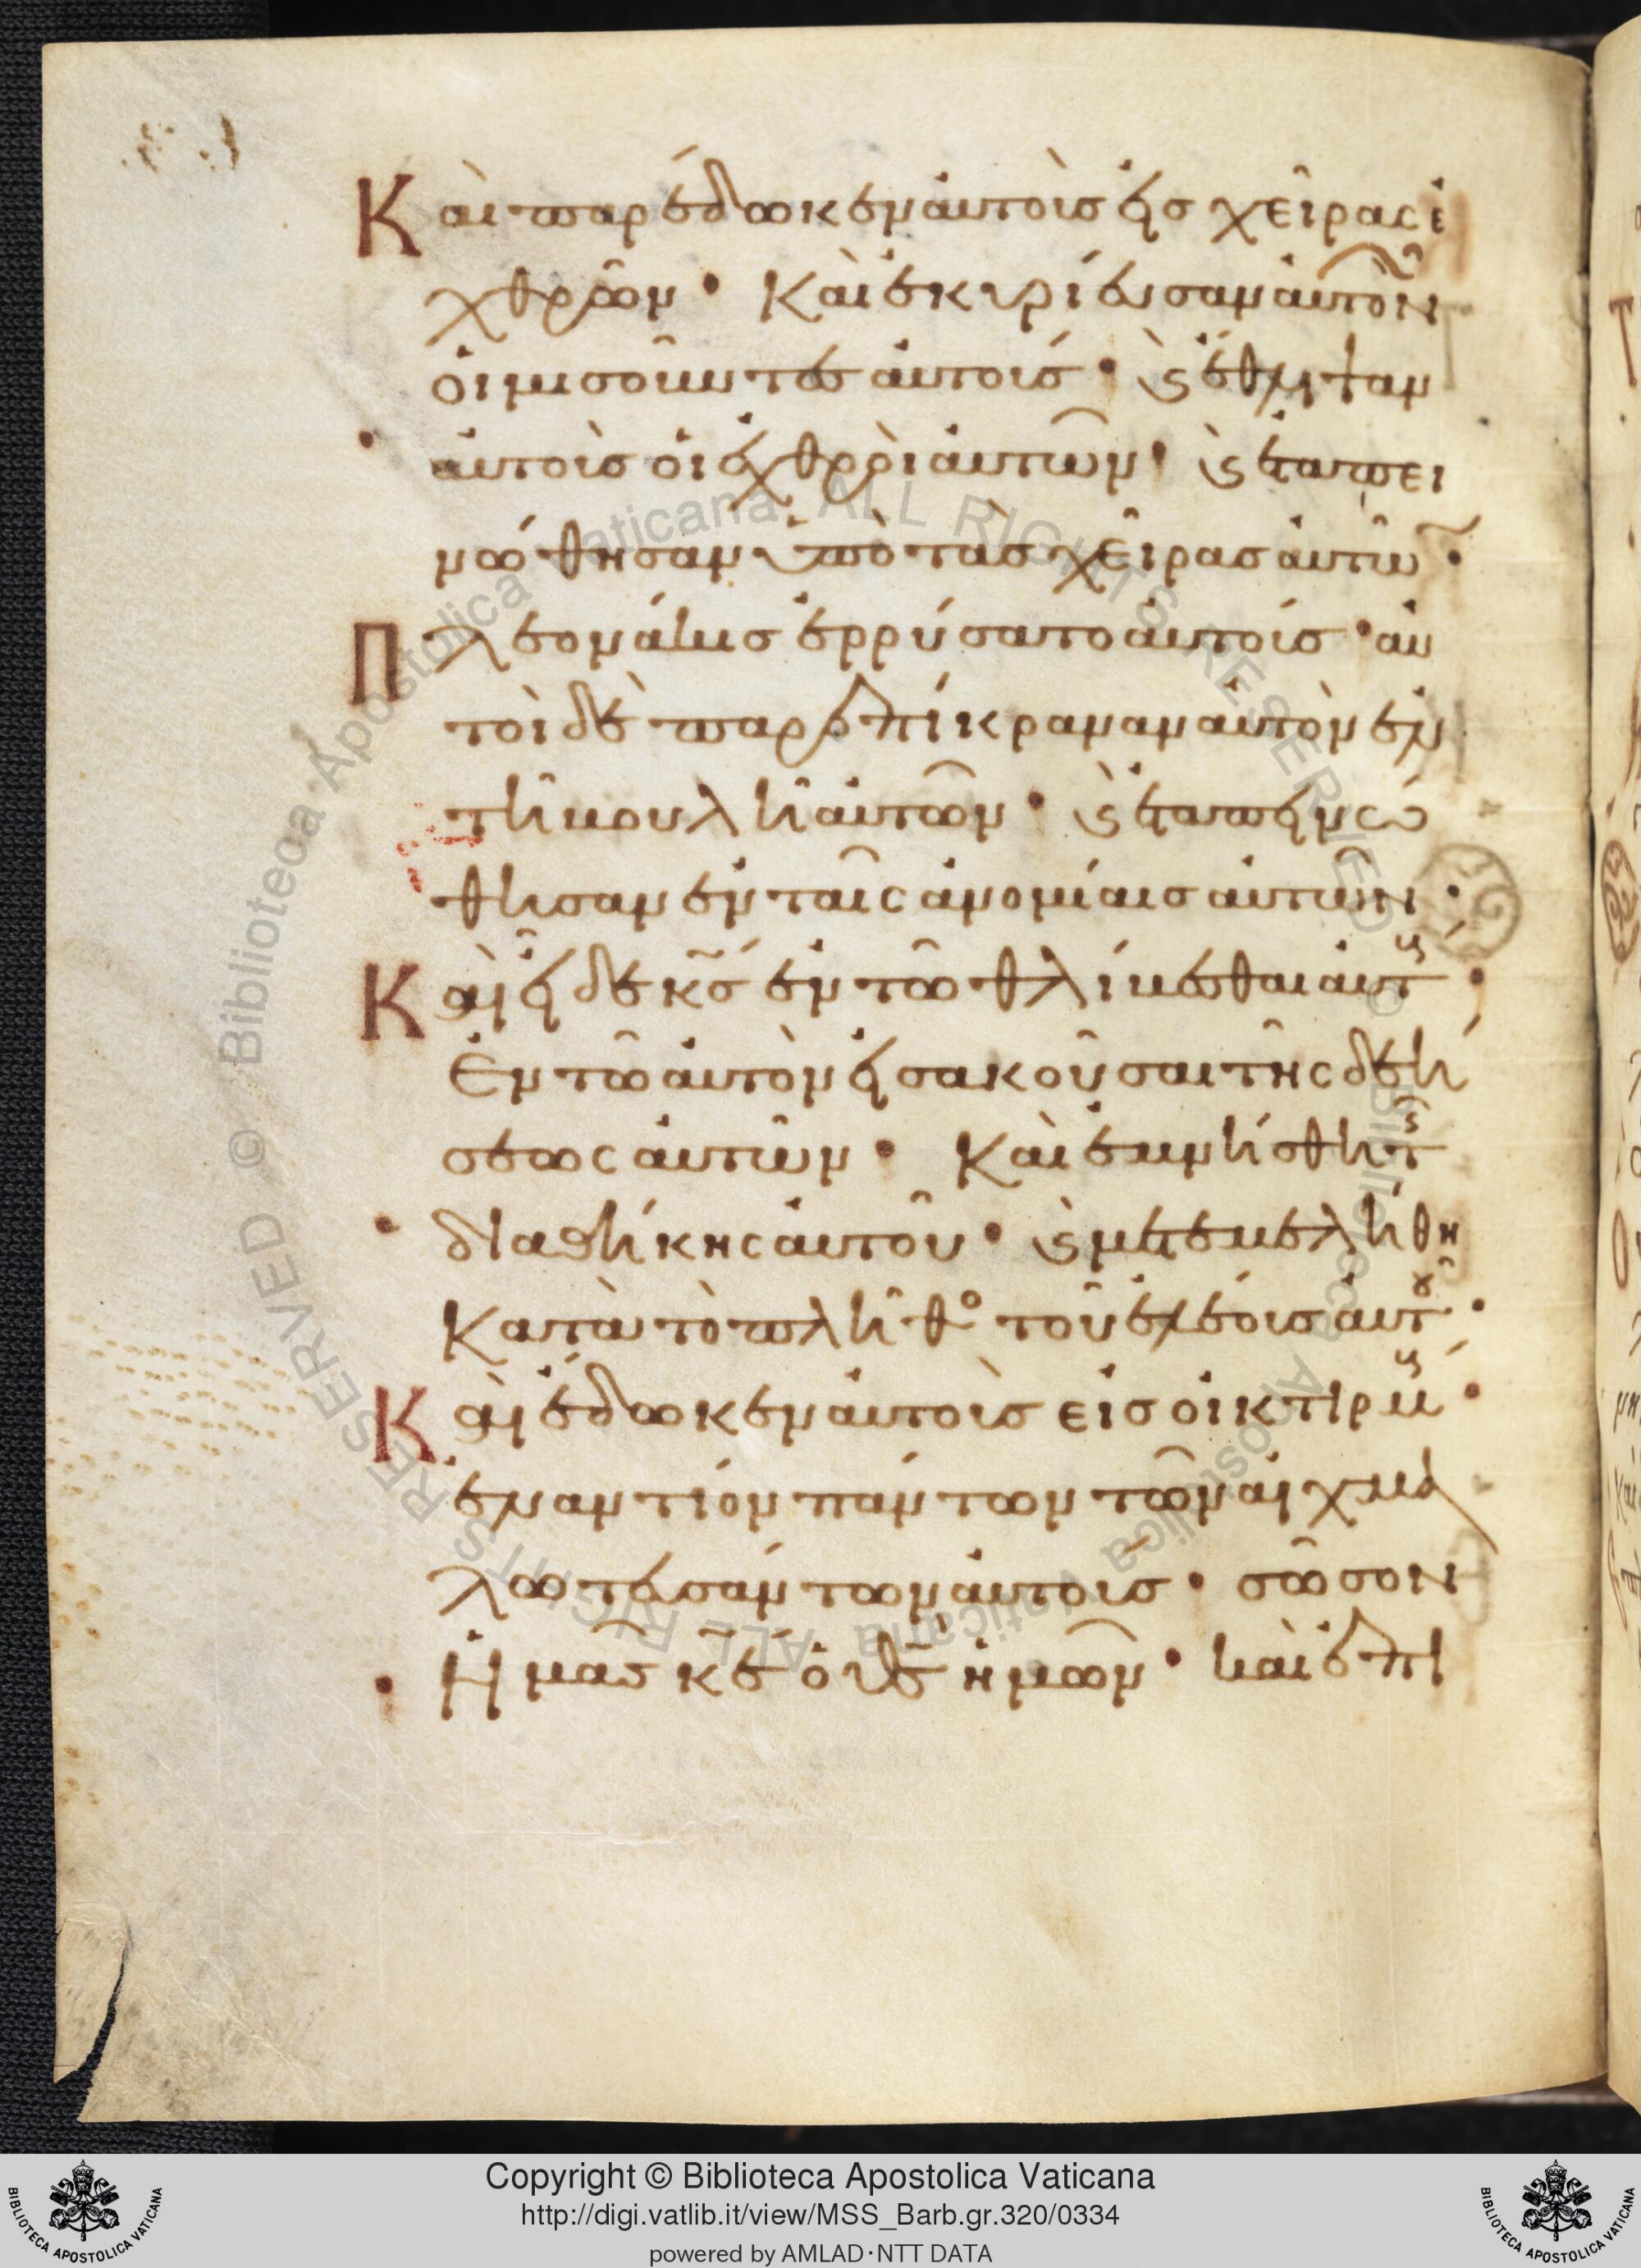 Καὶ παρέδωκεν αὐτοὺς εἰς χεῖρας ἐ
χθρῶν · Καὶ ἐκυρίευσαν αὐτῶν
οἱ μισοῦντες αὐτούς · ϛ ἔθλιψαν
αὐτοὺς οἱ ἐχθροὶ αὐτῶν · ϛ ἐταπει
νώθησαν ὑπὸ τὰς χεῖρας αὐτῶ ·
Πλεονάκις ἐρρύσατο αὐτούς · αὐ
τοὶ δὲ παρεπίκραναν αὐτὸν ἐν
τῆ βουλῆ αὐτῶν · ϛ ἐταπεινώ
θησαν ἐν ταῖς ἀνομίαις αὐτῶν ·
Καὶ εἶδε κς ἐν τῶ θλίβεσθαι αὐτ ·
Ἐν τῶ αὐτὸν εἰσακοῦσαι τῆς δεή
σεως αὐτῶν · Καὶ ἐμνήσθη τ
διαθήκης αὐτοῦ · ϛ μετεμελήθη
Κατὰ τὸ πλῆθο τοῦ ἐλέους αὐτοῦ ·
Καὶ ἔδωκεν αὐτοὺς εἰς οἰκτιρμ ·
ἐναντίον πάντων τῶν αἰχμα
λωτευσάντων αὐτούς · σῶσον
Ἡμᾶς κε ὁ θς ἡμῶν · καὶ ἐπι
Copyright © Biblioteca Apostolica Vaticana
http://digi.vatlib.it/view/MSS_Barb.gr.320/0334
powered by AMLAD·NTT DATA
BIBLIOTECA APOSTOLICA VATICANA
BIBLIOTECA APOSTOLICA VATICANA